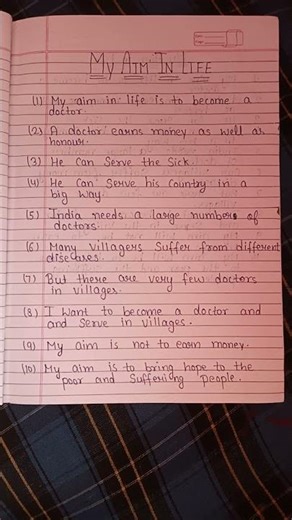 My Aim In Life
(1) My aim in life is to become a
doctor.
(2) A doctor earns money as well as
honour.
(3) He Can Serve the Sick.
(4) He Can Serve his Country in a
big way.
(5) India needs a large number of
doctors.
(6) Many villagers Suffer from different
diseases.
(7) But there are very few doctors
in villages.
(8) I Want to become a doctor and
and Serve in villages.
(9) My aim is not to earn money.
(10) My aim is to bring hope to the
poor and Suffering people.